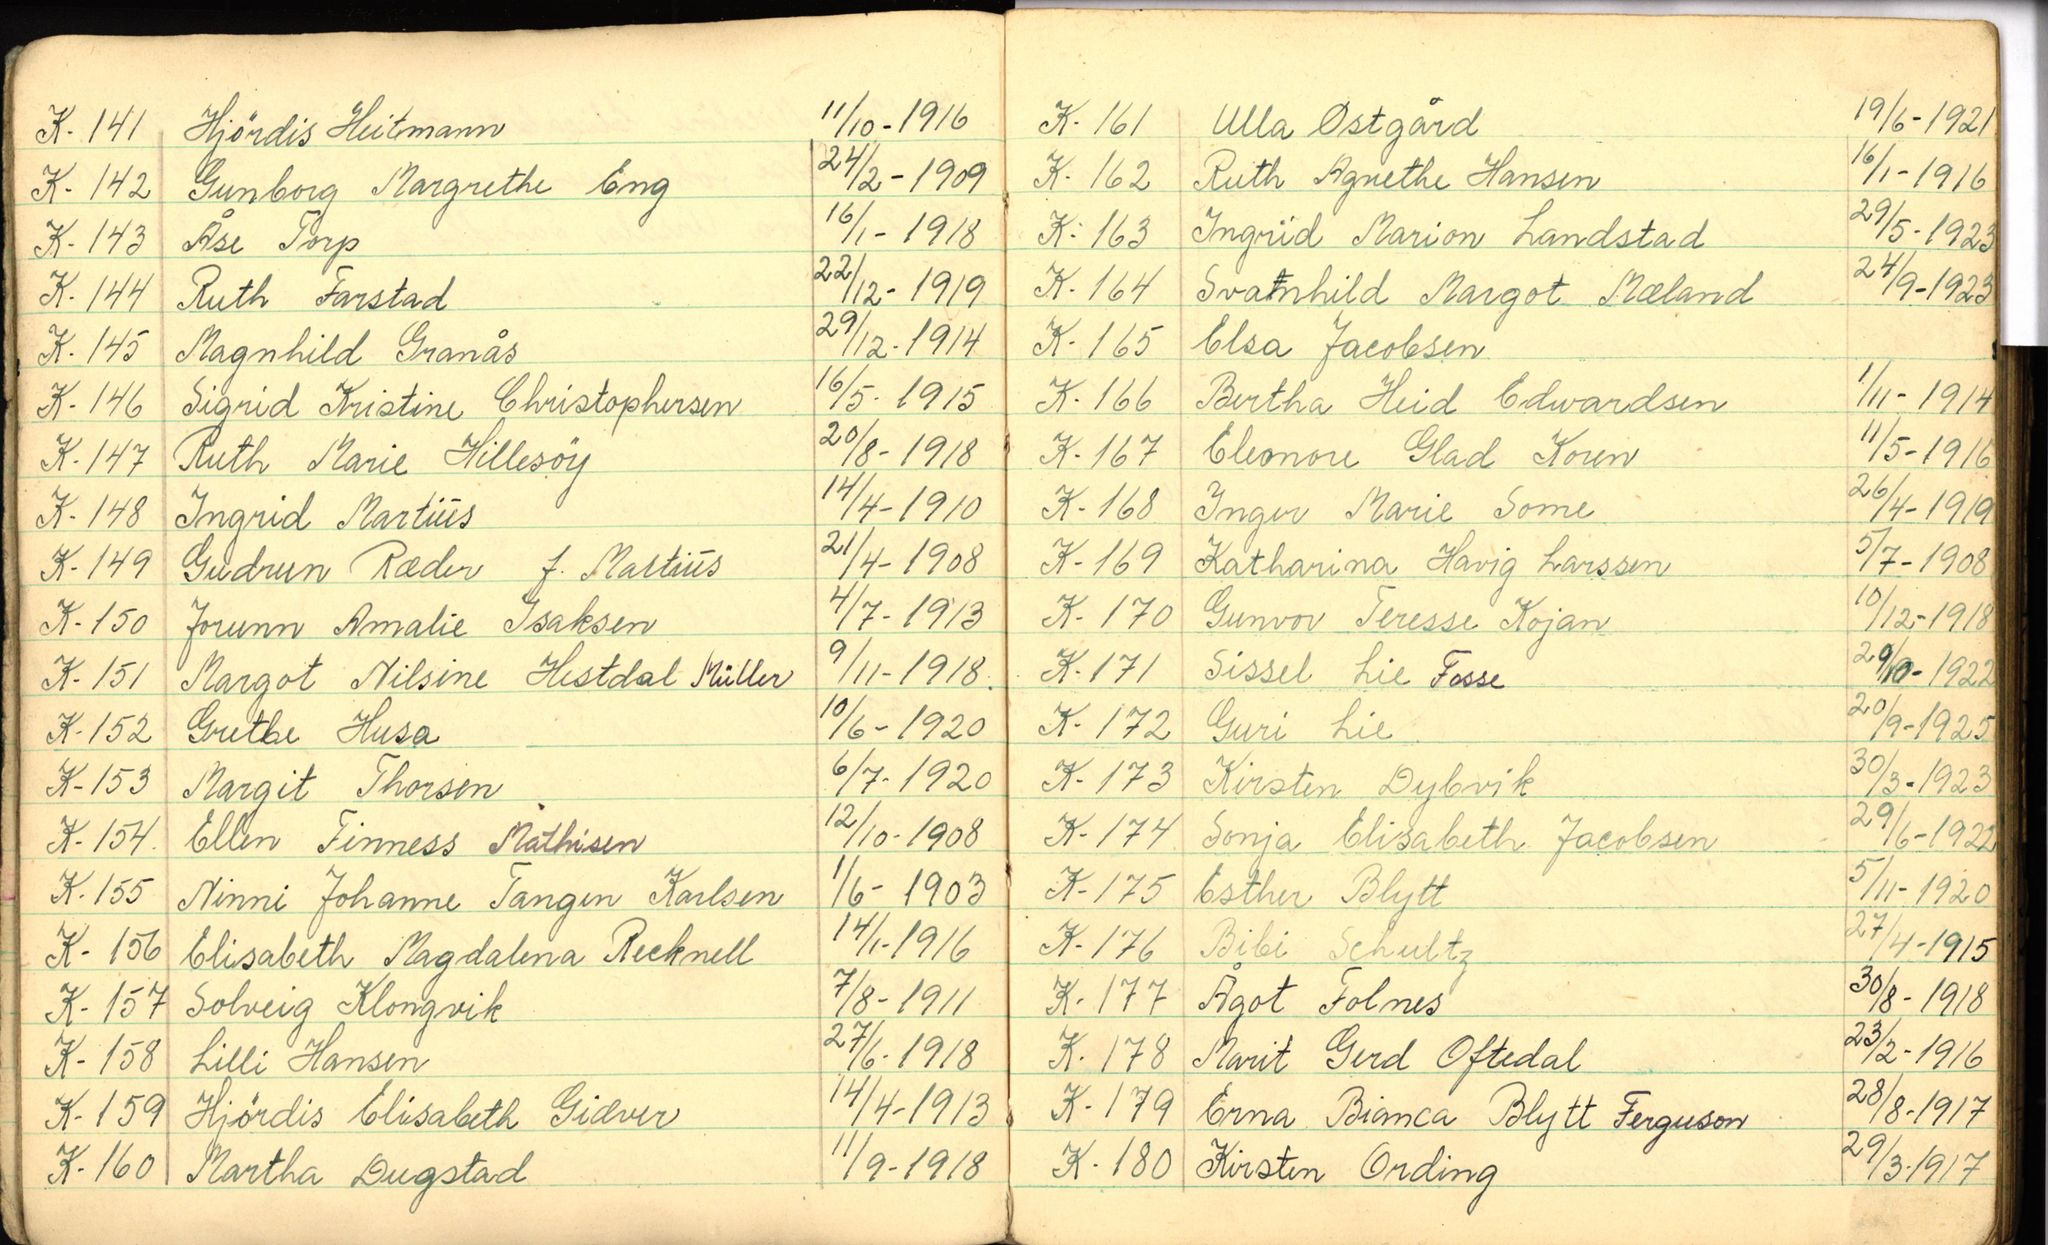 K-141 Hjördis Heitmann 11/10-1916
K-142 Gunborg Margrethe Eng 24/2-1909
K-143 Åse Torp 16/1-1918
K-144 Ruth Farstad 22/12-1919
K-145 Magnhild Granås 29/12-1914
K-146 Sigrid Kristine Christophersen 16/5-1915
K-147 Ruth Marie Hillesöy 20/8-1918
K-148 Ingrid Martiüs 14/4-1910
K-149 Gudrun Ræder f. Martiüs 21/4-1908
K-150 Jorunn Amalie Isaksen 4/7-1913
K-151 Margot Nilsine Hestdal Müller 9/11-1918
K-152 Grethe Husa 10/6-1920
K-153 Margit Thorsen 6/7-1920
K-154. Ellen Finness Mathisen 12/10-1908
K-155 Ninni Johanne Tangen Karlsen 1/6-1903
K-156 Elisabeth Magdalena Recknell 14/1-1916
K-157 Solveig Klongvik 7/8-1911
K-158 Lilli Hansen 27/6-1918
K-159 Hjördis Elisabeth Giæver 14/4-1913
K-160 Martha Dugstad 11/9-1918
K-161 Ulla Østgård 19/6-1921
K-162 Ruth Agnethe Hansen 16/1-1916
K-163 Ingrid Marion Landstad 29/5-1923
K-164 Svanhild Margot Mæland 24/9-1923
K-165 Elsa Jacobsen
K-166 Bertha Heid Edwardsen 1/11-1914
K-167 Eleonore Glad Koren 11/5-1916
K-168 Inger Marie Some 26/4-1919
K-169 Katharina Havig Larssen 5/7-1908
K-170 Gunvor Teresse Kojan 10/12-1918
K-171 Sissel Lie Fosse 29/10-1922
K-172 Guri Lie 20/9-1925
K-173 Kirsten Dybvik 30/3-1923
K-174 Sonja Elisabeth Jacobsen 29/6-1922
K-175 Esther Blytt 5/11-1920
K-176 Bibi Schultz 27/4-1915
K-177 Ågot Folnes 30/8-1918
K-178 Marit Gerd Oftedal 23/2-1916
K-179 Erna Bianca Blytt Ferguson 28/8-1917
K-180 Kirsten Ording 29/3-1917